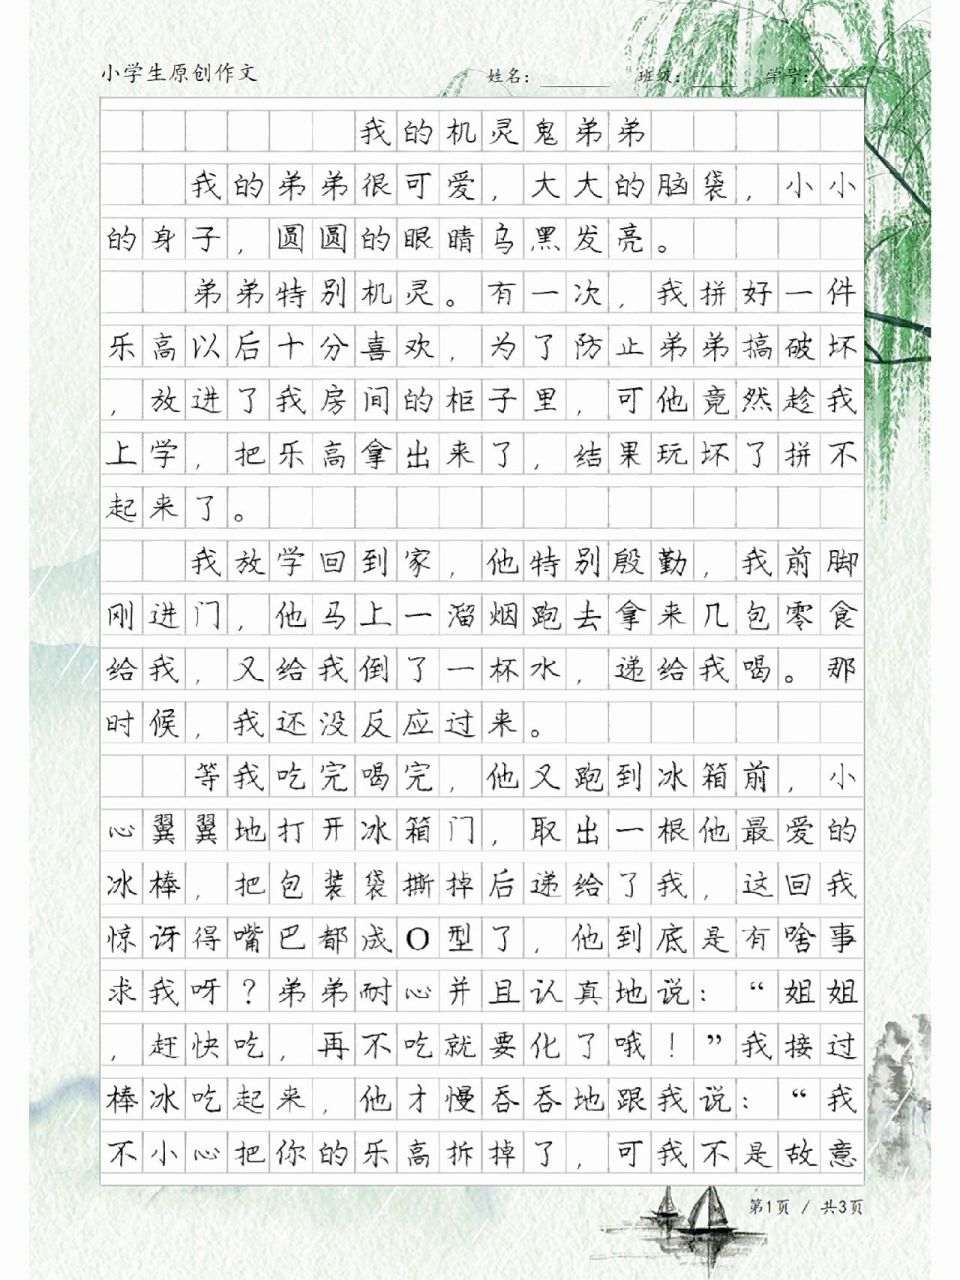 小学生原创作文 姓名: 班级: 学号:
我的机灵鬼弟弟
我的弟弟很可爱，大大的脑袋，小小
的身子，圆圆的眼睛乌黑发亮。
弟弟特别机灵。有一次，我拼好一件
乐高以后十分喜欢，为了防止弟弟搞破坏
，放进了我房间的柜子里，可他竟然趁我
上学，把乐高拿出来了，结果玩坏了拼不
起来了。
我放学回到家，他特别殷勤，我前脚
刚进门，他马上一溜烟跑去拿来几包零食
给我，又给我倒了一杯水，递给我喝。那
时候，我还没反应过来。
等我吃完喝完，他又跑到冰箱前，小
心翼翼地打开冰箱门，取出一根他最爱的
冰棒，把包装袋撕掉后递给了我，这回我
惊讶得嘴巴都成O型了，他到底是有啥事
求我呀？弟弟耐心并且认真地说：“姐姐
，赶快吃，再不吃就要化了哦！”我接过
棒冰吃起来，他才慢吞吞地跟我说：“我
不小心把你的乐高拆掉了，可我不是故意
第1页 / 共3页